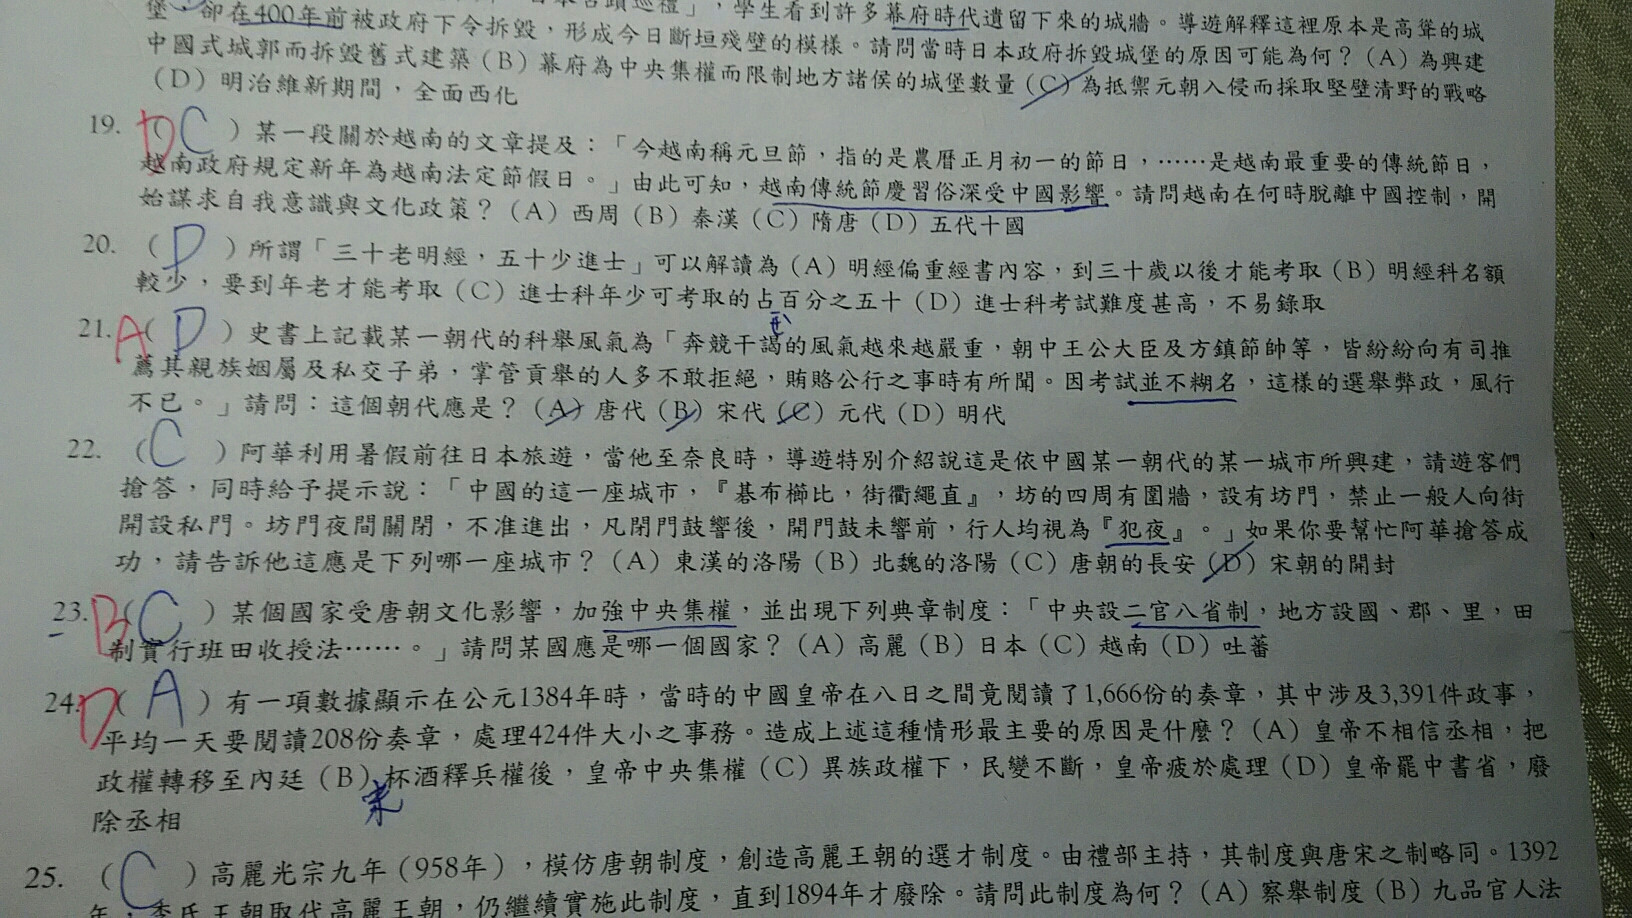 堡，卻在400年前被政府下令拆毀，形成今日斷垣殘壁的模樣。請問當時日本政府拆毀城堡的原因可能為何？（A）為興建
學生看到許多幕府時代遺留下來的城牆。導遊解釋這裡原本是高聳的城
中國式城郭而拆毀舊式建築（B）幕府為中央集權而限制地方諸侯的城堡數量（C）為抵禦元朝入侵而採取堅壁清野的戰略
（D）明治維新期間，全面西化
19. D（C）某一段關於越南的文章提及：「今越南稱元旦節，指的是農曆正月初一的節日，……是越南最重要的傳統節日，
越南政府規定新年為越南法定節假日。」由此可知，越南傳統節慶習俗深受中國影響。請問越南在何時脫離中國控制，開
始謀求自我意識與文化政策？（A）西周（B）秦漢（C）隋唐（D）五代十國
20. （D）所謂「三十老明經，五十少進士」可以解讀為（A）明經偏重經書內容，到三十歲以後才能考取（B）明經科名額
較少，要到年老才能考取（C）進士科年少可考取的占百分之五十（D）進士科考試難度甚高，不易錄取
21. A（D）史書上記載某一朝代的科舉風氣為「奔競干謁的風氣越來越嚴重，朝中王公大臣及方鎮節帥等，皆紛紛向有司推
薦其親族姻屬及私交子弟，掌管貢舉的人多不敢拒絕，賄賂公行之事時有所聞。因考試並不糊名，這樣的選舉弊政，風行
不已。」請問：這個朝代應是？（A）唐代（B）宋代（C）元代（D）明代
22. （C）阿華利用暑假前往日本旅遊，當他至奈良時，導遊特別介紹說這是依中國某一朝代的某一城市所興建，請遊客們
搶答，同時給予提示說：「中國的這一座城市，『碁布櫛比，街衢繩直』，坊的四周有圍牆，設有坊門，禁止一般人向街
開設私門。坊門夜間關閉，不准進出，凡閉門鼓響後，開門鼓未響前，行人均視為『犯夜』。」如果你要幫忙阿華搶答成
功，請告訴他這應是下列哪一座城市？（A）東漢的洛陽（B）北魏的洛陽（C）唐朝的長安（D）宋朝的開封
23. B（C）某個國家受唐朝文化影響，加強中央集權，並出現下列典章制度：「中央設二官八省制，地方設國、郡、里，田
制實行班田收授法……。」請問某國應是哪一個國家？（A）高麗（B）日本（C）越南（D）吐蕃
24. D（A）有一項數據顯示在公元1384年時，當時的中國皇帝在八日之間竟閱讀了1,666份的奏章，其中涉及3,391件政事，
平均一天要閱讀208份奏章，處理424件大小之事務。造成上述這種情形最主要的原因是什麼？（A）皇帝不相信丞相，把
政權轉移至內廷（B）杯酒釋兵權後，皇帝中央集權（C）異族政權下，民變不斷，皇帝疲於處理（D）皇帝罷中書省，廢
宋
除丞相
25. （C）高麗光宗九年（958年），模仿唐朝制度，創造高麗王朝的選才制度。由禮部主持，其制度與唐宋之制略同。1392
年，李氏王朝取代高麗王朝，仍繼續實施此制度，直到1894年才廢除。請問此制度為何？（A）察舉制度（B）九品官人法